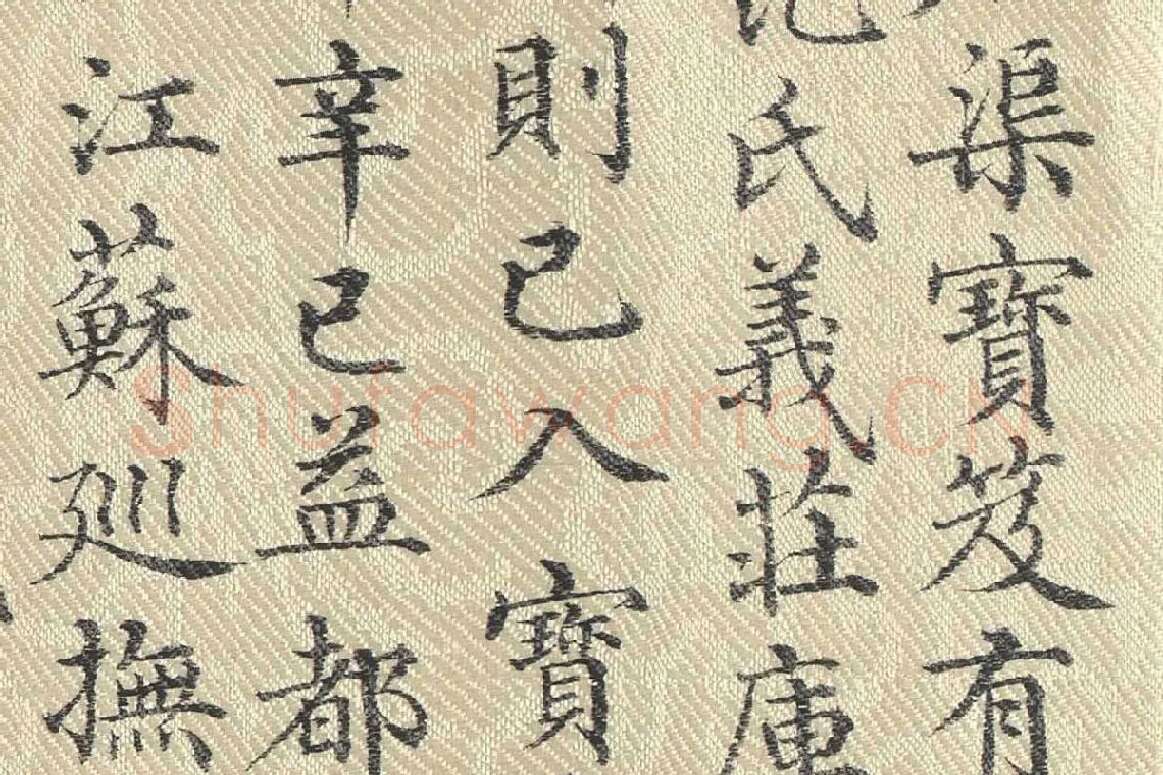 渠寶笈有
氏義莊庫
則已入寶
辛巳益都
江蘇廵撫
Shufawang.cn